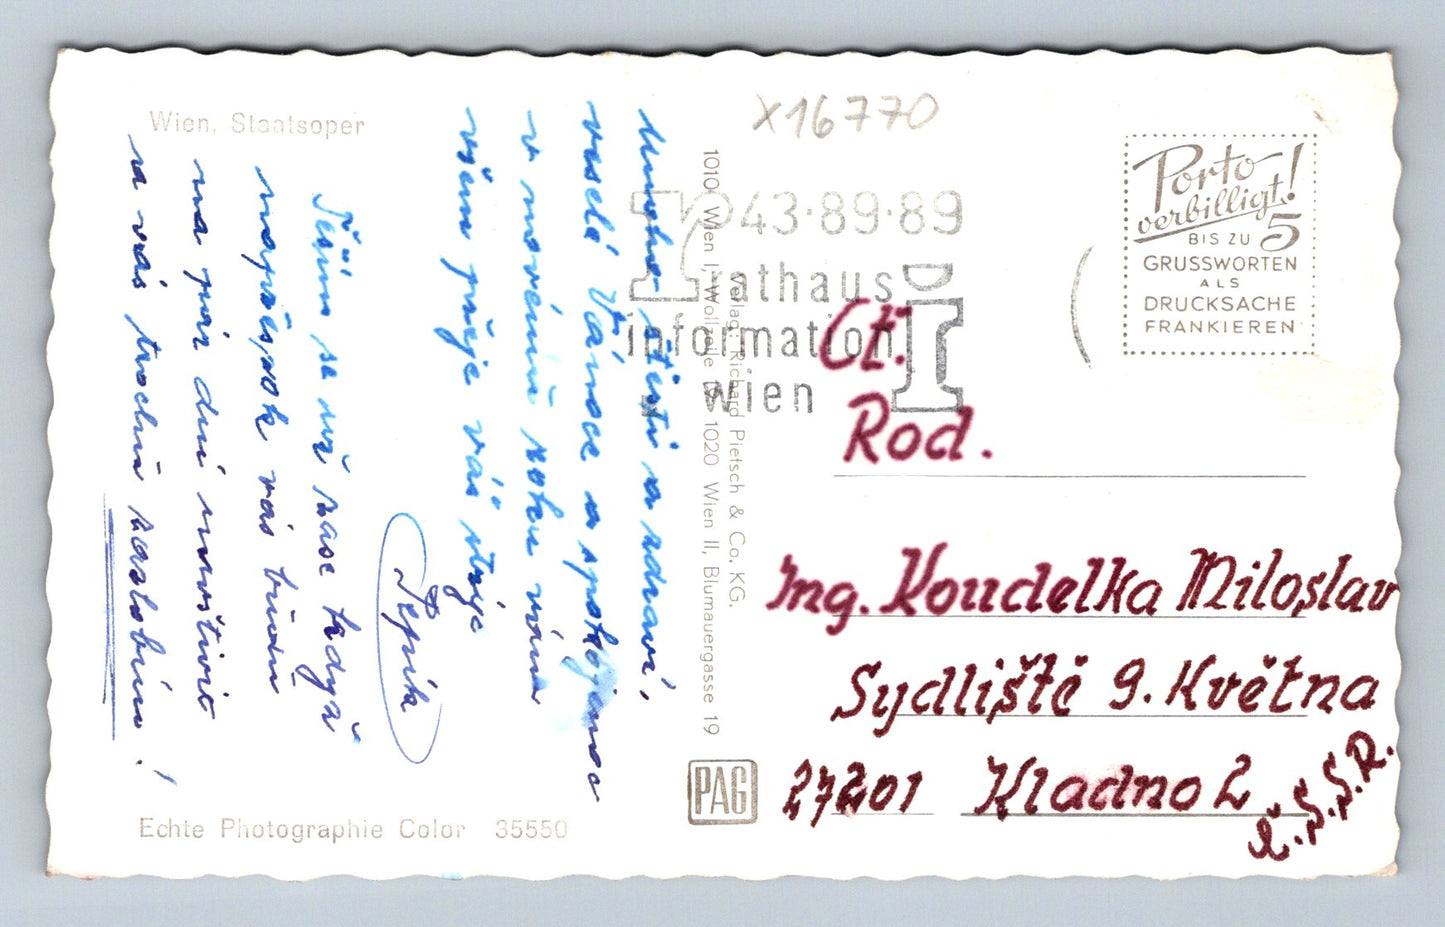 Wien, Staatsoper
x16770
Mnoho štěstí a zdraví,
veselé Vánoce a spokojenost
v novém roku vám
všem přeje váš strýc
Pepík
Těším se už zase tady
naopak vás
na pár dní navštívit
za vás trochu zazlobím!
Echte Photographie Color 35550
1010 Wien I, Wollzeile 19, 1020 Wien II, Blumauergasse 19
Verlag: Richard Pietsch & Co. KG.
PAG
43·89·89
rathaus
information
wien
Porto
verbilligt!
BIS ZU 5
GRUSSWORTEN
ALS
DRUCKSACHE
FRANKIEREN
Ct.
Rod.
Ing. Koudelka Miloslav
Sydliště 9. Května
27201 Kladno 2
Č.S.S.R.